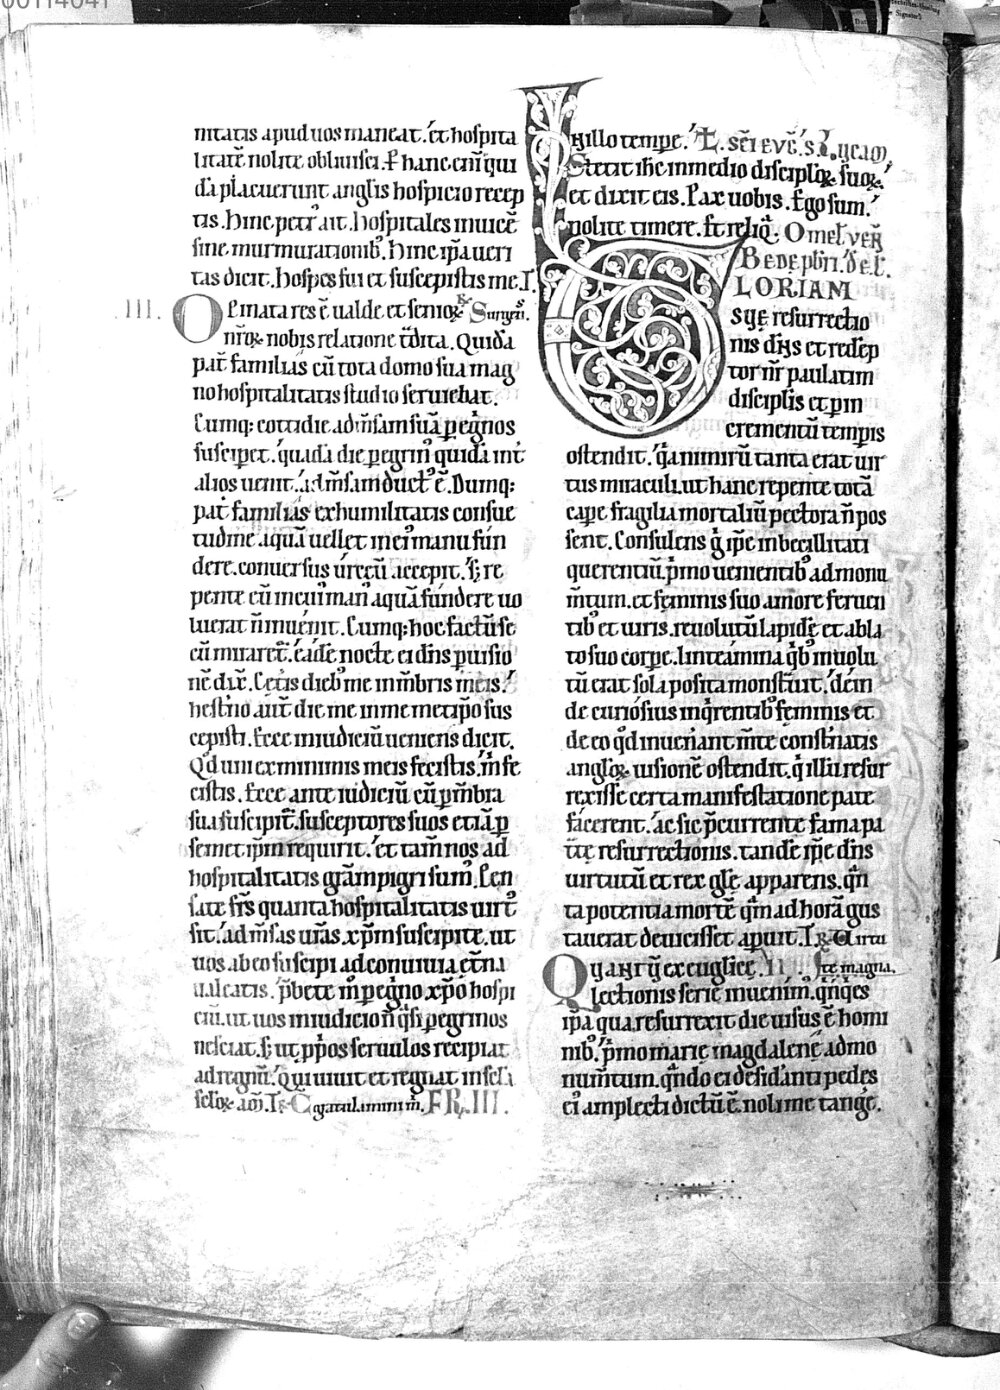 00114041
nitatis apud uos maneat. Et hospita
litatē nolite obliuisci. P hanc eni͂ qui
dā placuerunt anglis hospicio recep
tis. Hinc petr᷒ ait. hospitales inuicē
sine murmurationib᷒. Hinc ip̄a ueri
tas dicit. hospes fui et suscepistis me. R̷.
.III. Opinata res ē ualde. et senioꝝ Surgēs.
nr̄oꝝ nobis relatione t̄dita. Quidā
pat̄ familias cū tota domo sua mag
no hospitalitatis studio seruiebat.
Cumq; cottidie ad m̄sam suā pegͥnos
susciperet. quadā die pegrin᷒ quidā int̄
alios uenit. ad m̄sam duct᷒ ē. Dumq;
pat̄ familias ex humilitatis consue
tudine aquā uellet in ei᷒ manu fun
dere. conuersus urceū accepit. Sꝫ re
pente eū in cui᷒ man᷒ aquā fundere uo
luerat n̄ inuenit. Cumq; hoc factū se
cū miraret᷑. eadē nocte ei dn̄s p uisio
nē dix̄. Cet̄is dieb᷒ me in m̄bris meis.
hest̄no aut̄ die me in me metip̄o sus
cepisti. Ecce in iudiciū ueniens dicit.
Qd̄ uni ex minimis meis fecistis. m̄ fe
cistis. Ecce ante iudiciū cū p m̄bra
sua suscipit᷑. susceptores suos etiā p
semet ip̄m requirit. et tam̄ nos ad
hospitalitatis gr̄am pigri sum᷒. Pen
sate fr̄s quanta hospitalitatis uirt᷒
sit. ad m̄sas ur̄as xp̄m suscipite. ut
uos ab eo suscipi ad conuiuia et̄na
ualeatis. p̄bete m̄ pegͥno xp̄o hospi
ciū. ut uos in iudicio n̄ qͣsi pegrinos
nesciat. sꝫ ut pp̄os seruulos recipiat
ad regnū. Qui uiuit et regnat in sc̄la
sc̄loꝝ am̄. R̷. Congratulamini m̄. FR̷. III.
In illo tempe. T. sc̄i euc̄. s. Lucam
Stetit ih̄c in medio discipl̄oꝝ suoꝝ.
et dixit eis. Pax uobis. Ego sum.
nolite timere. Et reliq̄. Omel̄. uen̄
Bede pbr̄i. de e.
GLORIAM
suę resurrectio
nis dn̄s et redēp
tor nr̄ paulatim
discipl̄is et p in
crementū temp̄is
ostendit. qͣ nimirū tanta erat uir
tus miraculi. ut hanc repente totā
cape fragilia mortaliū pectora n̄ pos
sent. Consulens gͦ ip̄e inbecillitati
querentiū. pͥmo uenientib᷒ ad monu
m̄tum. et feminis suo amore feruen
tib᷒ et uiris. reuolutū lapidē et abla
to suo corpe. linteamina qͥb᷒ inuolu
tū erat sola posita monst̄uit. dein
de curiosius inqͥrentib᷒ feminis et
de eo qd̄ inuenīant m̄te const̄natis
angl̄oꝝ uisionē ostendit. qͥ illū resur
rexisse certa manifestatione pate
facerent. ac sic p̄currente fama pa
t̄tę resurrectionis. tandē ip̄e dn̄s
uirtutū et rex gl̄ę apparens. qͣn
ta potentia mortē qͣm ad horā gus
tauerat deuicisset apuit. R̷. Virtu
Quantū ex euglicę. II. te magna.
lectionis serie inuenim᷒. qͥnqͥes
ip̄a qua resurrexit die uisus ē homi
nib᷒. pͥmo marie magdalenę ad mo
num̄tum. qͣndo ei desid̄anti pedes
ei᷒ amplecti dictū ē. noli me tange.